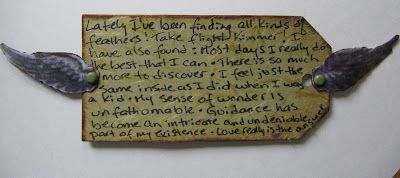 Lately I've been finding all kinds of
feathers! Take flight Kimmer! I
have also found: Most days I really do
the best that I can • There is so much
more to discover • I feel just the
same inside as I did when I was
a kid • My sense of wonder is
unfathomable • Guidance has
become an intricate and undeniable
part of my existence • Love really is the answer